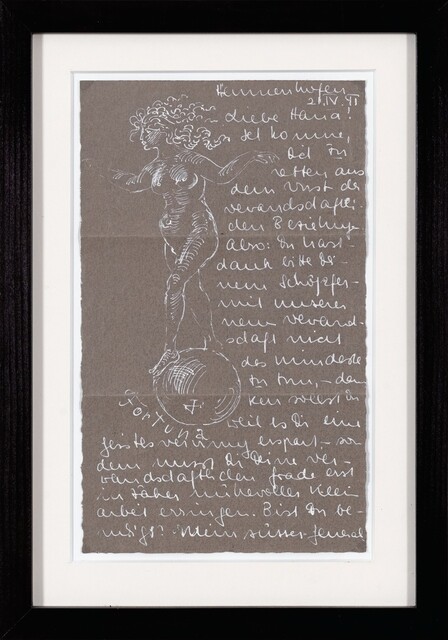 Hemmenhofen
2.IV.41
Liebe Hana!
Ich komme,
Dich zu
retten aus
dem Wust der
verwandschaftli-
chen Beziehungen
also: Du hast
dank bitte Dei-
nem Schöpfer
mit unserer
neuen Verwand-
schaft nicht
das mindeste
zu tun, – dan-
ken sollst Du
weil es Dir eine
FORTUNA
geistesverwirrung erspart – son
dern musst Dir Deine ver-
wandschaftlichen Grade erst
in zäher mühevoller Klein
arbeit erringen. Bist Du be-
ruhigt? Mein süsser General